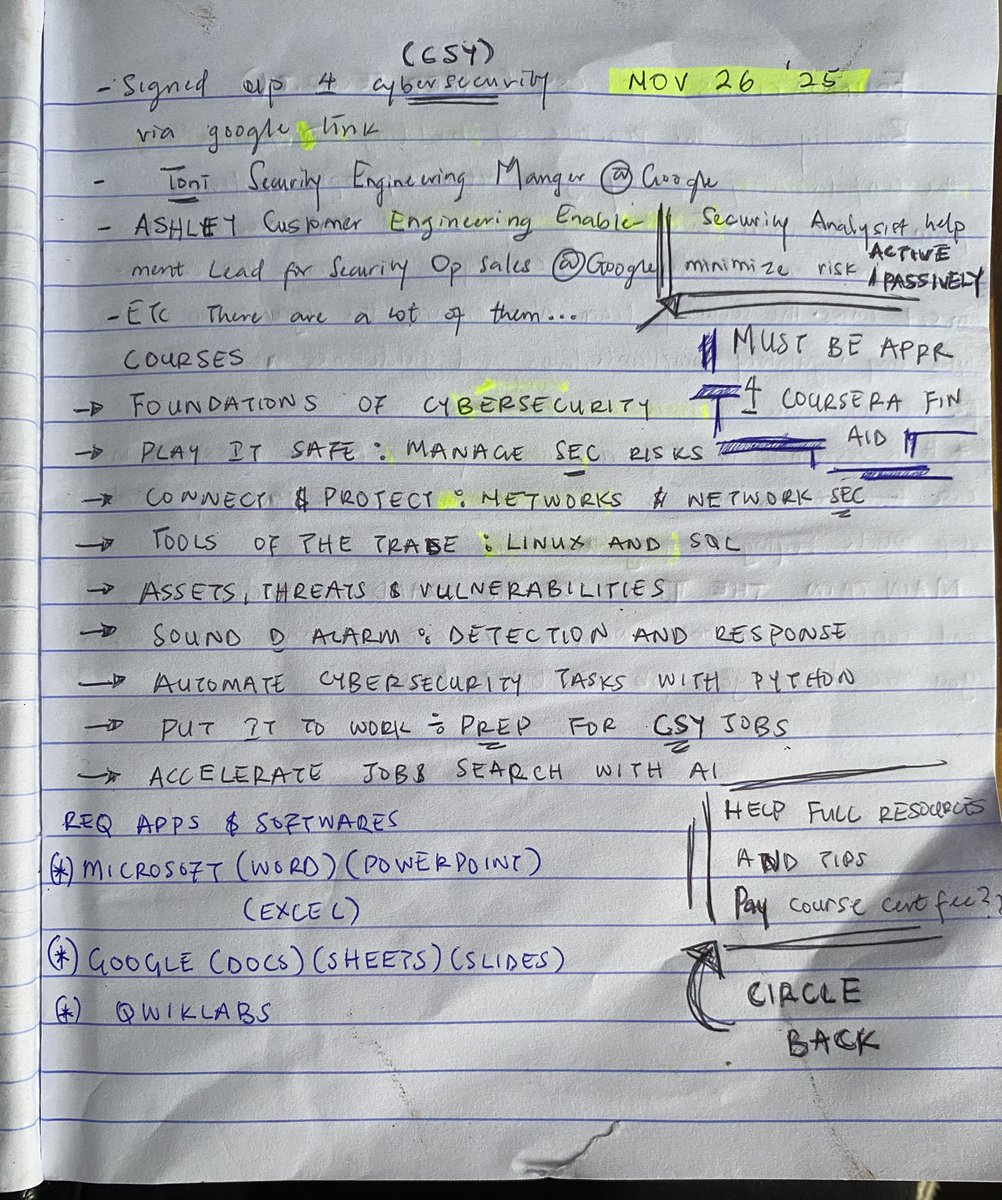 (CSY)
- Signed up 4 cybersecurity
NOV 26 '25
via google link
- Toni Security Engineering Manger @ Google
- ASHLEY Customer Engineering Enable-
ment Lead for Security Op sales @Google
Security Analysist help
minimize risk ACTIVE
/ PASSIVELY
- ETC There are a lot of them...
COURSES
MUST BE APPR
4 COURSERA FIN
AID
→ FOUNDATIONS OF CYBERSECURITY
→ PLAY IT SAFE : MANAGE SEC RISKS
→ CONNECT $ PROTECT : NETWORKS $ NETWORK SEC
→ TOOLS OF THE TRADE : LINUX AND SQL
→ ASSETS, THREATS & VULNERABILITIES
→ SOUND D ALARM : DETECTION AND RESPONSE
→ AUTOMATE CYBERSECURITY TASKS WITH PYTHON
→ PUT IT TO WORK : PREP FOR CSY JOBS
→ ACCELERATE JOBS SEARCH WITH AI
REQ APPS $ SOFTWARES
(*) MICROSOFT (WORD) (POWERPOINT)
(EXCEL)
(*) GOOGLE (DOCS) (SHEETS) (SLIDES)
(*) QWIKLABS
HELP FULL RESOURCES
AND TIPS
Pay course cert fee??
CIRCLE
BACK